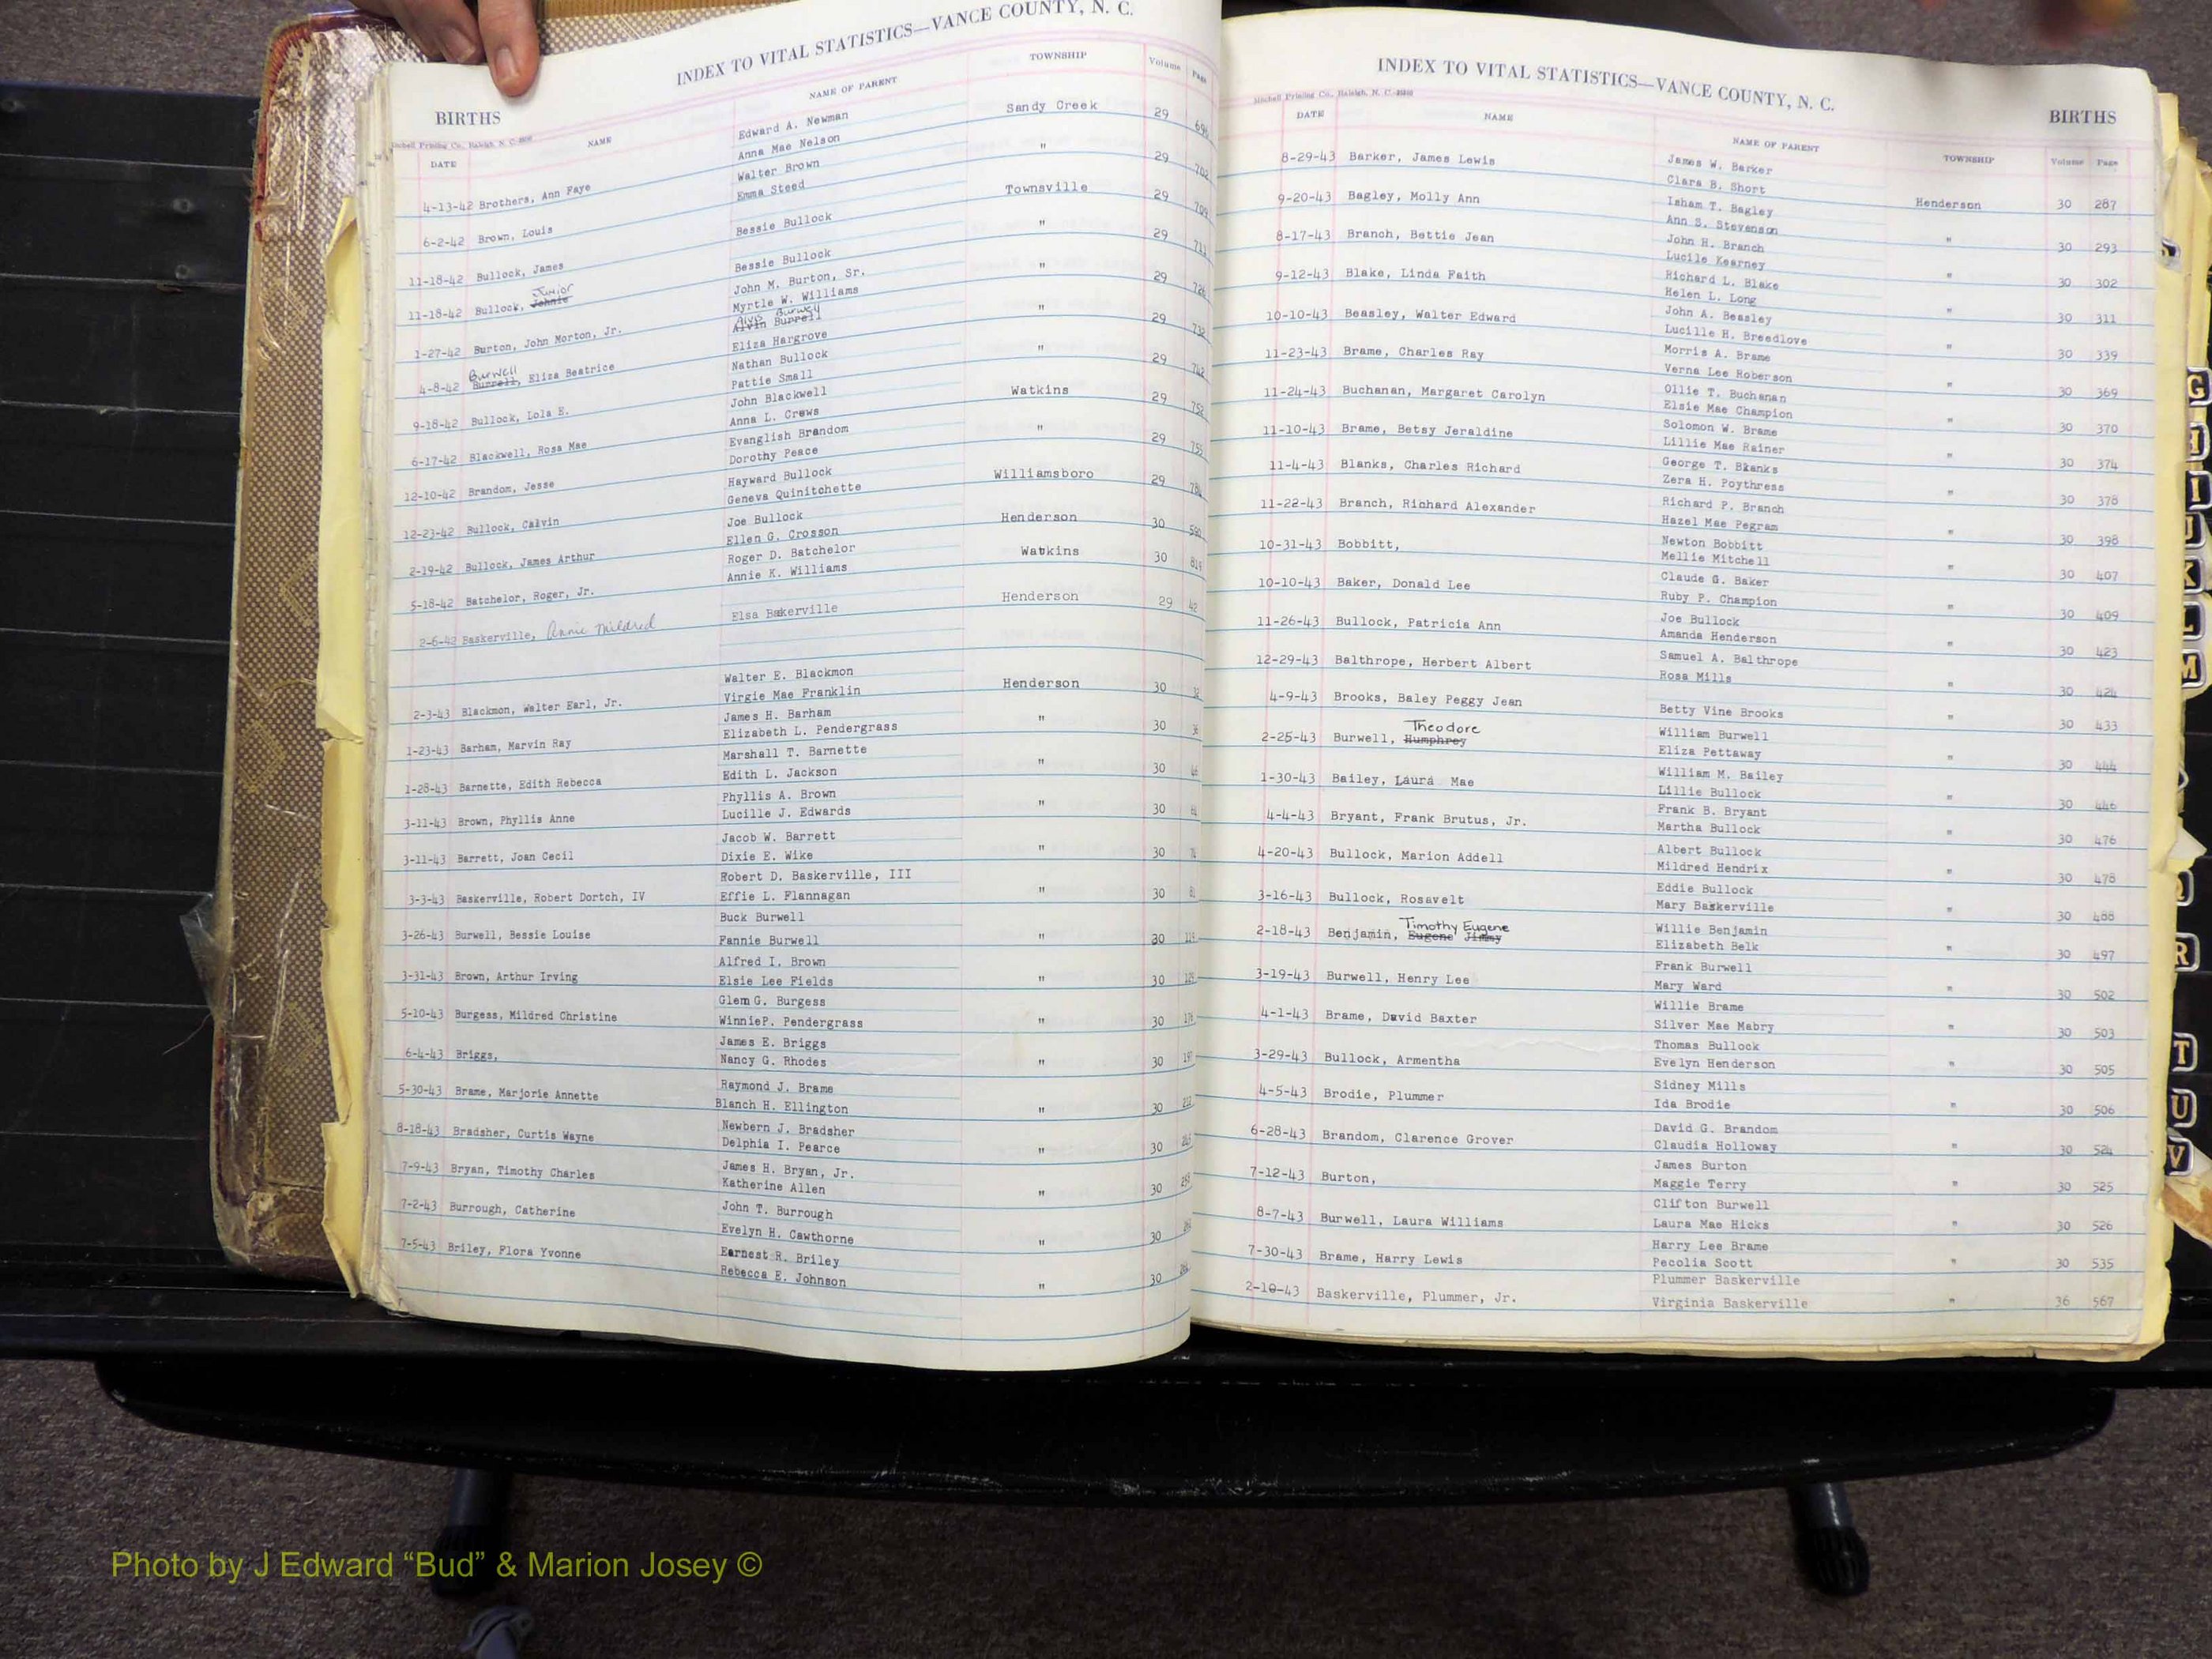 INDEX TO VITAL STATISTICS—VANCE COUNTY, N. C.
BIRTHS
DATE NAME NAME OF PARENT TOWNSHIP Volume Page
Edward A. Newman
4-13-42 Brothers, Ann Faye Anna Mae Nelson Sandy Creek 29
Walter Brown
6-2-42 Brown, Louis Emma Steed " 29
11-18-42 Bullock, James Bessie Bullock Townsville 29
Junior
11-18-42 Bullock, Johnie Bessie Bullock " 29
John M. Burton, Sr.
1-27-42 Burton, John Morton, Jr. Myrtle W. Williams " 29
Alvis Burwell
Alvin Burrell
Burwell
4-8-42 Burrell, Eliza Beatrice Eliza Hargrove " 29
Nathan Bullock
9-18-42 Bullock, Lola E. Pattie Small " 29
John Blackwell
6-17-42 Blackwell, Rosa Mae Anna L. Crews Watkins 29
Evanglish Brandom
12-10-42 Brandom, Jesse Dorothy Peace " 29
Hayward Bullock
12-23-42 Bullock, Calvin Geneva Quinitchette Williamsboro 29
Joe Bullock
2-19-42 Bullock, James Arthur Ellen G. Crosson Henderson 30
Roger D. Batchelor
5-18-42 Batchelor, Roger, Jr. Annie K. Williams Watkins 30
2-6-42 Baskerville, Annie Mildred Elsa Bakerville Henderson 29 42
Walter E. Blackmon
2-3-43 Blackmon, Walter Earl, Jr. Virgie Mae Franklin Henderson 30
James H. Barham
1-23-43 Barham, Marvin Ray Elizabeth L. Pendergrass " 30
Marshall T. Barnette
1-28-43 Barnette, Edith Rebecca Edith L. Jackson " 30
Phyllis A. Brown
3-11-43 Brown, Phyllis Anne Lucille J. Edwards " 30
Jacob W. Barrett
3-11-43 Barrett, Joan Cecil Dixie E. Wike " 30
Robert D. Baskerville, III
3-3-43 Baskerville, Robert Dortch, IV Effie L. Flannagan " 30
Buck Burwell
3-26-43 Burwell, Bessie Louise Fannie Burwell " 30
Alfred I. Brown
3-31-43 Brown, Arthur Irving Elsie Lee Fields " 30
Glem G. Burgess
5-10-43 Burgess, Mildred Christine WinnieP. Pendergrass " 30
James E. Briggs
6-4-43 Briggs, Nancy G. Rhodes " 30
Raymond J. Brame
5-30-43 Brame, Marjorie Annette Blanch H. Ellington " 30
Newbern J. Bradsher
8-18-43 Bradsher, Curtis Wayne Delphia I. Pearce " 30
James H. Bryan, Jr.
7-9-43 Bryan, Timothy Charles Katherine Allen " 30
John T. Burrough
7-2-43 Burrough, Catherine Evelyn H. Cawthorne " 30
Earnest R. Briley
7-5-43 Briley, Flora Yvonne Rebecca E. Johnson " 30
INDEX TO VITAL STATISTICS—VANCE COUNTY, N. C.
Mitchell Printing Co., Raleigh, N. C.
BIRTHS
DATE NAME NAME OF PARENT TOWNSHIP Volume Page
James W. Barker
8-29-43 Barker, James Lewis Clara B. Short Henderson 30 287
Isham T. Bagley
9-20-43 Bagley, Molly Ann Ann S. Stevenson " 30 293
John H. Branch
8-17-43 Branch, Bettie Jean Lucile Kearney " 30 302
Richard L. Blake
9-12-43 Blake, Linda Faith Helen L. Long " 30 311
John A. Beasley
10-10-43 Beasley, Walter Edward Lucille H. Breedlove " 30 339
Morris A. Brame
11-23-43 Brame, Charles Ray Verna Lee Roberson " 30 369
Ollie T. Buchanan
11-24-43 Buchanan, Margaret Carolyn Elsie Mae Champion " 30 370
Solomon W. Brame
11-10-43 Brame, Betsy Jeraldine Lillie Mae Rainer " 30 374
George T. Blanks
11-4-43 Blanks, Charles Richard Zera H. Poythress " 30 378
Richard P. Branch
11-22-43 Branch, Richard Alexander Hazel Mae Pegram " 30 398
Newton Bobbitt
10-31-43 Bobbitt, Mellie Mitchell " 30 407
Claude G. Baker
10-10-43 Baker, Donald Lee Ruby P. Champion " 30 409
Joe Bullock
11-26-43 Bullock, Patricia Ann Amanda Henderson " 30 423
Samuel A. Balthrope
12-29-43 Balthrope, Herbert Albert Rosa Mills " 30 424
4-9-43 Brooks, Baley Peggy Jean Betty Vine Brooks " 30 433
Theodore William Burwell
2-25-43 Burwell, Humphrey Eliza Pettaway " 30 444
William M. Bailey
1-30-43 Bailey, Laura Mae Lillie Bullock " 30 446
Frank B. Bryant
4-4-43 Bryant, Frank Brutus, Jr. Martha Bullock " 30 476
Albert Bullock
4-20-43 Bullock, Marion Addell Mildred Hendrix " 30 478
Eddie Bullock
3-16-43 Bullock, Rosavelt Mary Baskerville " 30 488
Timothy Eugene Willie Benjamin
2-18-43 Benjamin, Eugene Jimmy Elizabeth Belk " 30 497
Frank Burwell
3-19-43 Burwell, Henry Lee Mary Ward " 30 502
Willie Brame
4-1-43 Brame, David Baxter Silver Mae Mabry " 30 503
Thomas Bullock
3-29-43 Bullock, Armentha Evelyn Henderson " 30 505
Sidney Mills
4-5-43 Brodie, Plummer Ida Brodie " 30 506
David G. Brandom
6-28-43 Brandom, Clarence Grover Claudia Holloway " 30 524
James Burton
7-12-43 Burton, Maggie Terry " 30 525
Clifton Burwell
8-7-43 Burwell, Laura Williams Laura Mae Hicks " 30 526
Harry Lee Brame
7-30-43 Brame, Harry Lewis Pecolia Scott " 30 535
Plummer Baskerville
2-10-43 Baskerville, Plummer, Jr. Virginia Baskerville " 36 567
G
I
J
K
L
M
R
T
U
V
Photo by J Edward “Bud” & Marion Josey ©